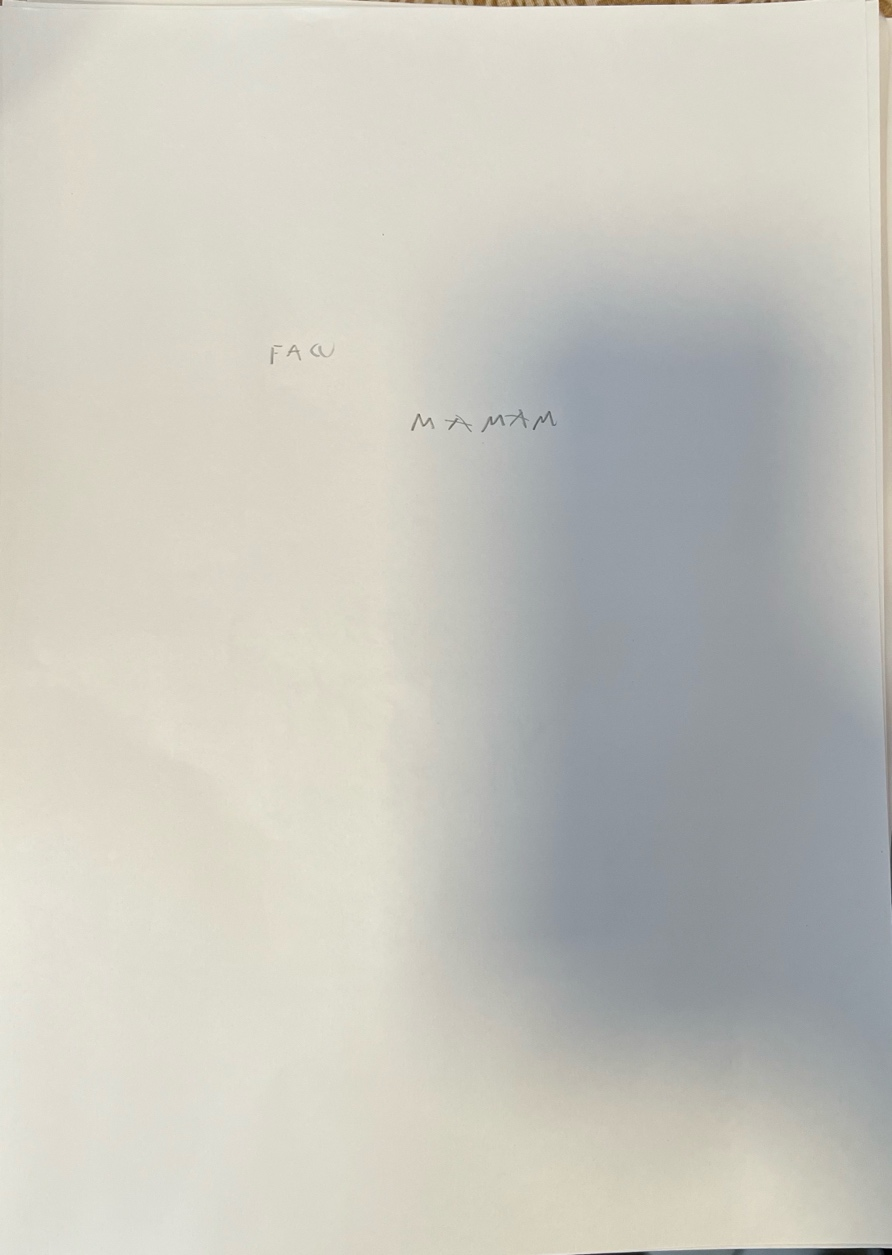 FACU
MAMAM